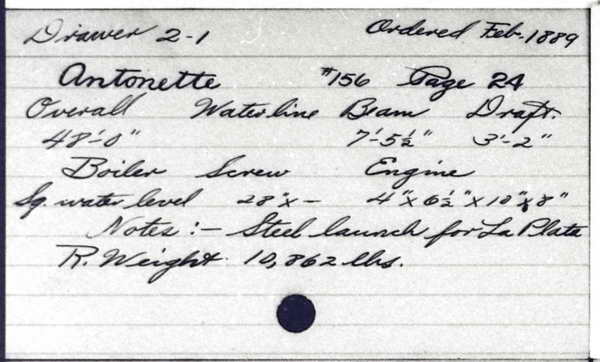 Drawer 2-1 Ordered Feb. 1889
Antonette #156 Page 24
Overall Waterline Beam Draft.
48'-0" 7'-5½" 3'-2"
Boiler Screw Engine
Sq. water level 28"x — 4"x 6½"x 10"x 8"
Notes :- Steel launch for La Plata
R. Weight 10,862 lbs.